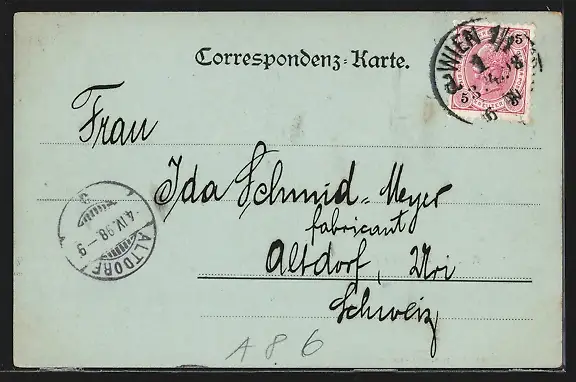 Correspondenz-Karte.
WIEN 1/1
5
5
Frau
Ida Schmid-Meyer
fabricant
Altdorf, Uri
Schweiz
-4.IV.98.-9
ALTDORF
A 8. 6